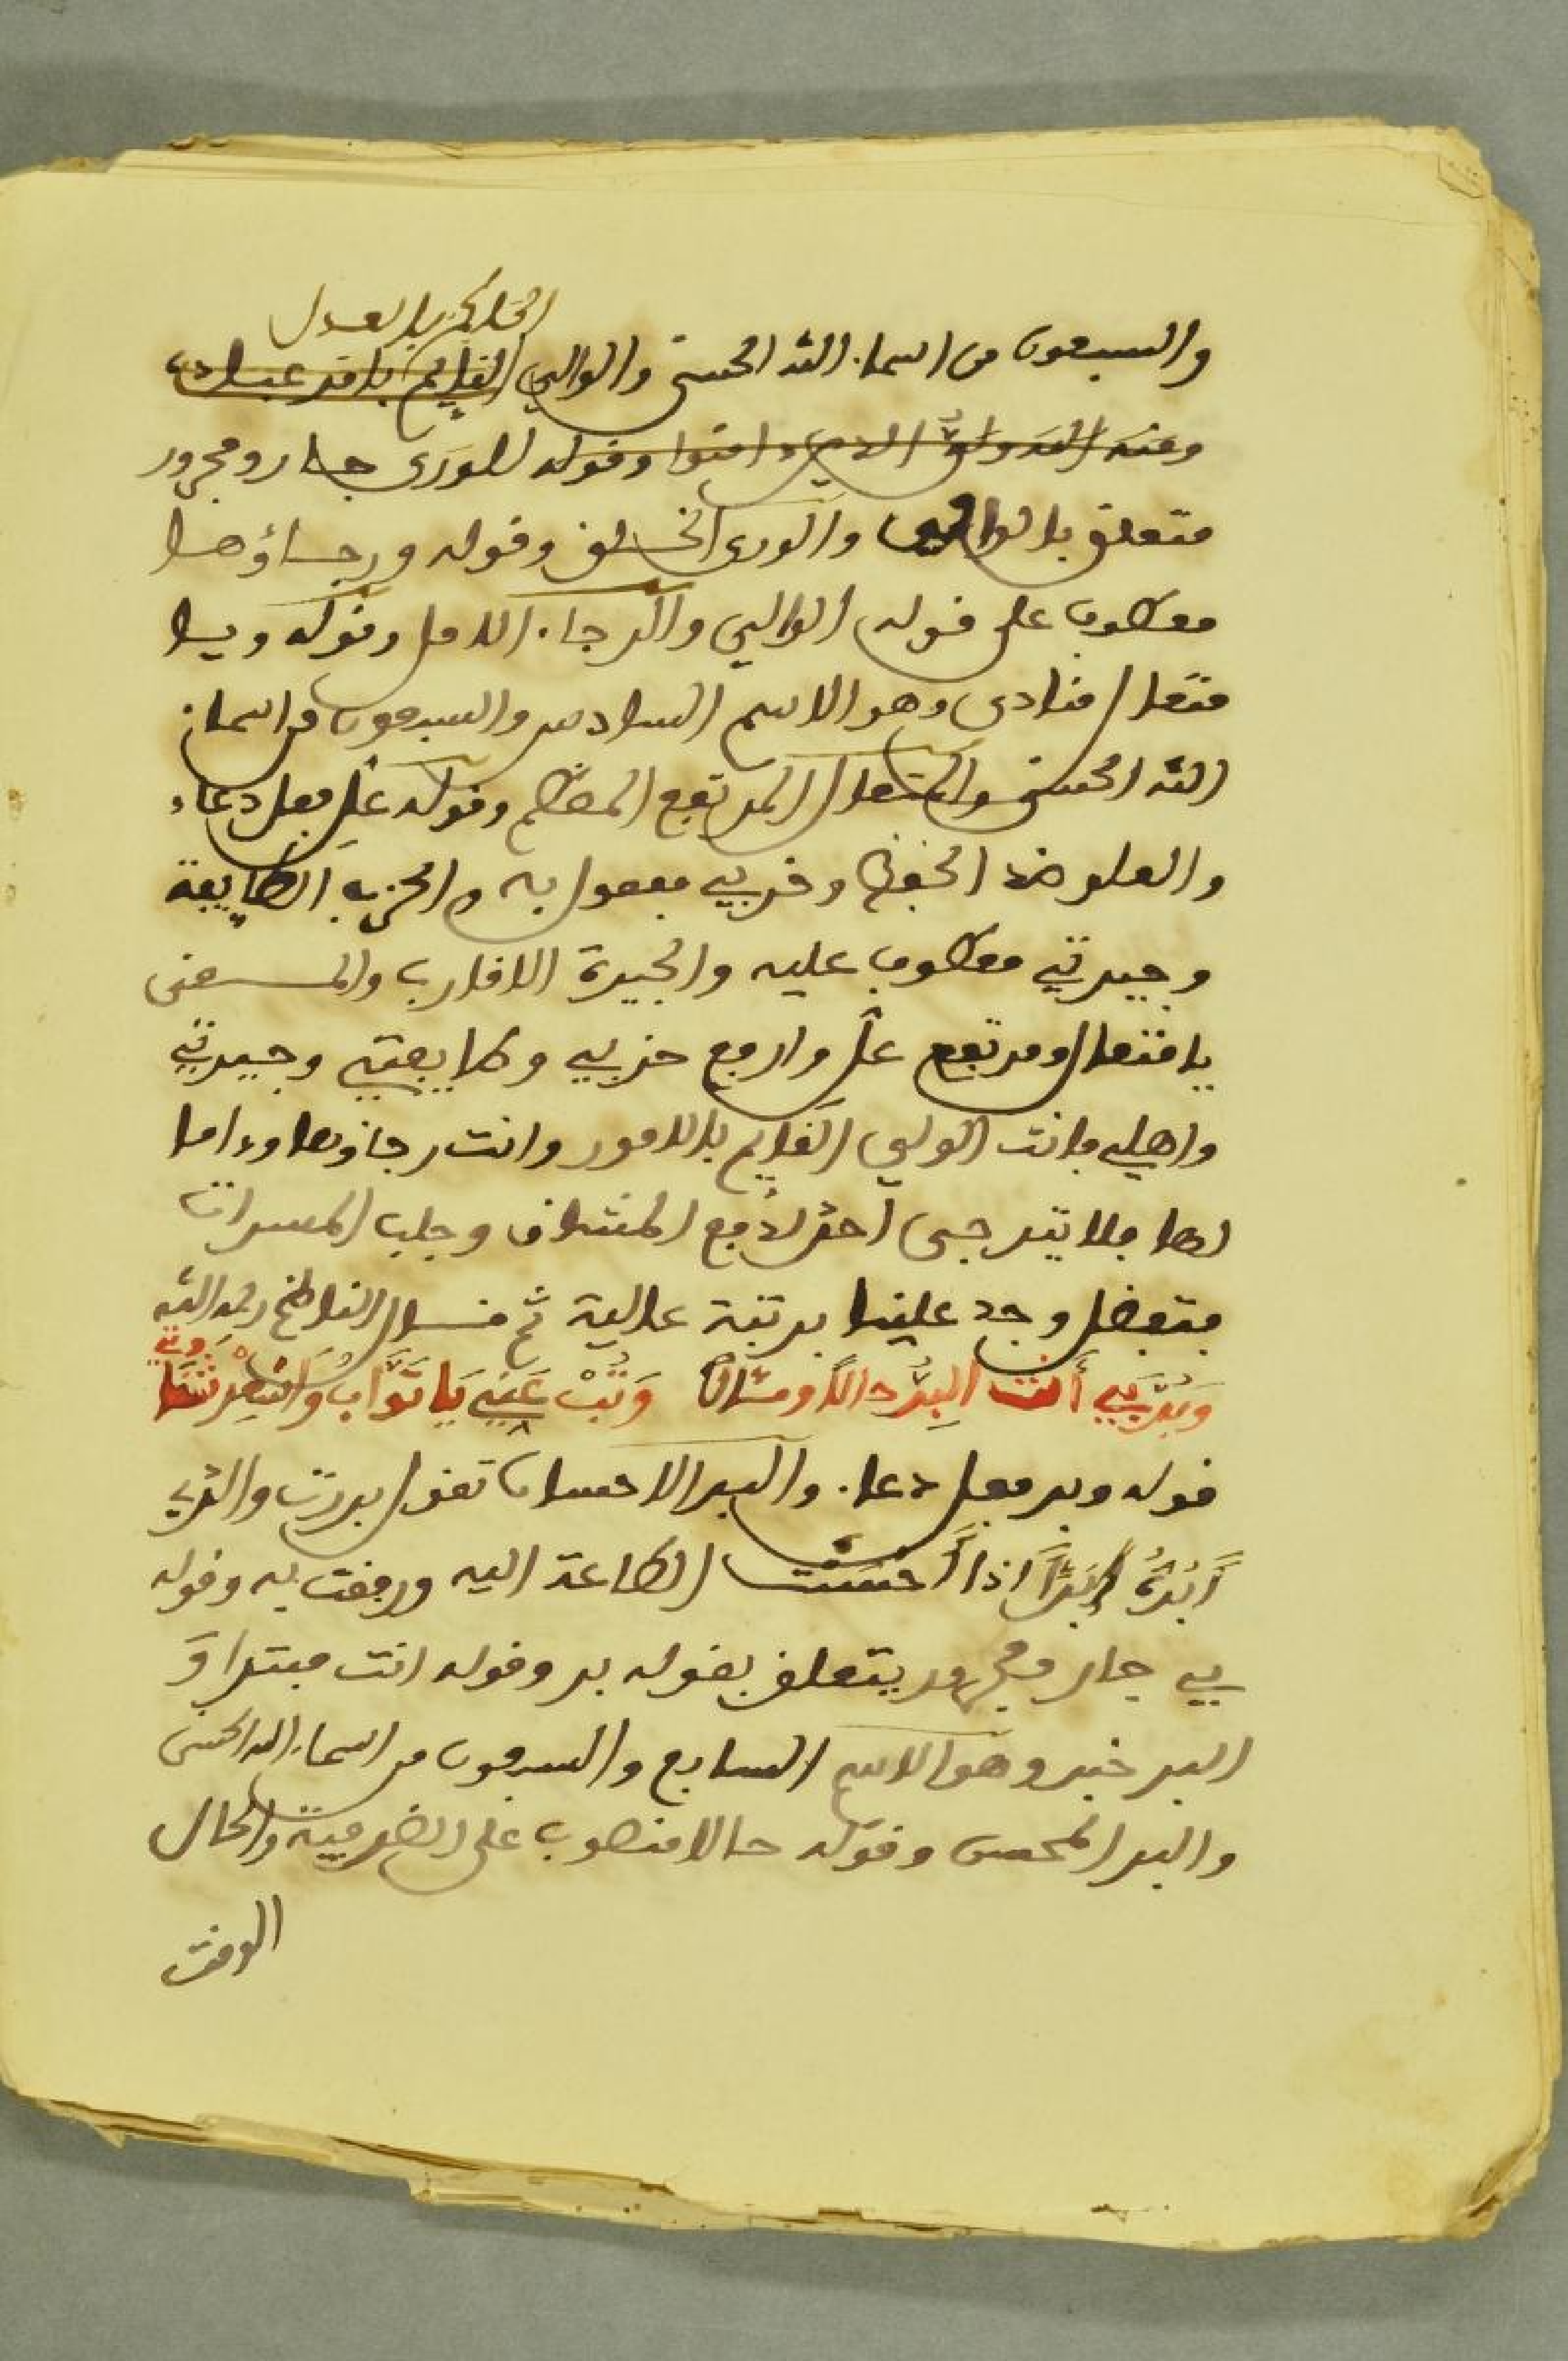 الحاكم بالعدل
والسبعون من اسماء الله الحسنى والوالي القايم بامر عباده
ومنه الله ولي الذين ءامنوا وقوله للورى جار ومجرور
متعلق بالوالي والورى الخلق وقوله ورجاؤها
معطوف على قوله الوالي والرجاء الامل وقوله ويا
متعال منادى وهو الاسم السادس والسبعون من اسماء
الله الحسنى والمتعال المرتفع المعظم وقوله عل فعل دعاء
والعلو ضد الخفض وحزبي مفعول به والحزب الطايفة
وجيرتي معطوف عليه والجيرة الاقارب والمعنى
يا متعال ومرتفع عل وارفع حزبي وطايفتي وجيرتي
واهلي فانت الولي القايم بالامور وانت رجاؤها وءاما
لها فلا يترجى احد لدفع المشاق وجلب المسرات
فتفضل وجد علينا برتبة عالية ثم قال الناظم رحمه الله
وبر بي أنت البر حالا ومئالا وتب عني يا تواب وانصر شا
وتي
قوله وبر فعل دعاء والبر الاحسان تقول بررت والدي
أبره برا اذا أحسنت الطاعة اليه ورفقت به وقوله
بي جار ومجرور يتعلق بقوله بر وقوله انت مبتدا و
البر خبر وهو الاسم السابع والسبعون من اسماء الله الحسنى
والبر المحسن وقوله حالا منصوب على الظرفية والحال
الوقت